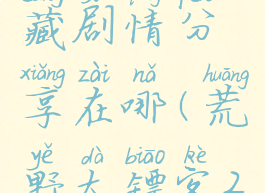 藏剧情分
xiǎng zài nǎ huāng
享在哪(荒
yě dà biāo kè
野大镖客2